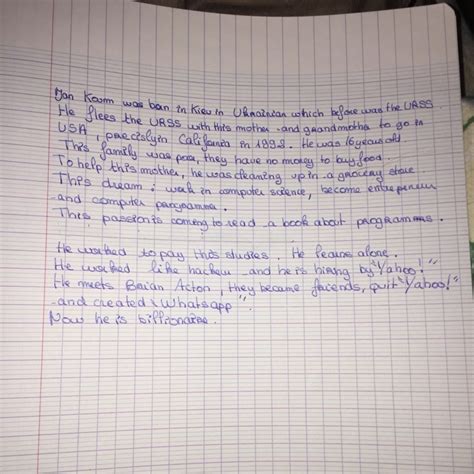 Jan Koum was born in Kiev in Ukrainian which before was the URSS
He flees the URSS with this mother and grandmother to go in
USA, precisly in California in 1992. He was 16 years old
This family was poor, they have no money to buy food.
To help this mother, he was cleaning up in a grocery store.
This dream : work in computer science, become entrepreneur
and computer programmer.
This passion is coming to read a book about programms.
He worked to pay this studies. He learns alone.
He worked like hacker and he is hiring by "Yahoo!"
He meets Brian Acton, they became friends, quit "Yahoo!"
and created "Whatsapp".
Now he is billionaire.